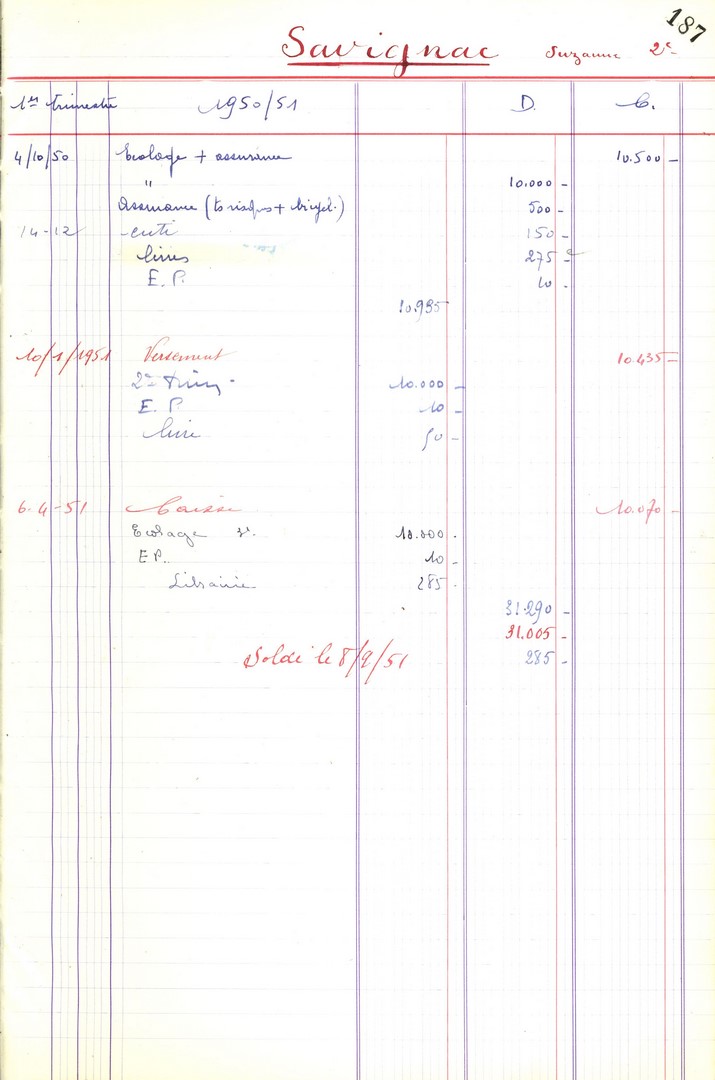 187
Savignac Suzanne 2e
1er trimestre 1950/51 D. C.
4/10/50 Ecolage + assurance 10.500 -
" 10.000 -
Assurance (ts risques + bicycl.) 500 -
14-12 150 -
livres 275 -
E. P. 10 -
10.935
10/1/1951 Versement 10.435 =
2e trim. 10.000 -
E. P. 10 -
livre 50 -
6-4-51 Caisse 10.070 -
Ecolage 3e. 10.000 -
E P.. 10 -
Librairie 285 -
31.290 -
31.005 -
Soldé le 8/9/51 285 -